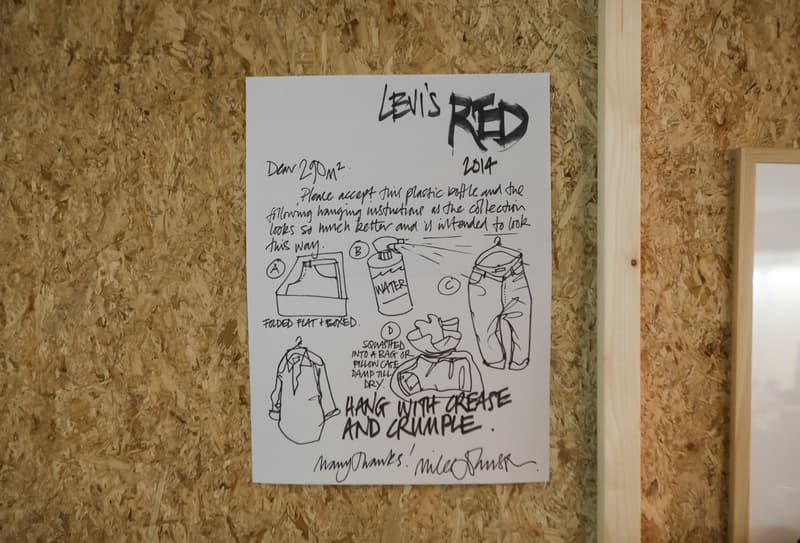 LEVI'S RED
2014
Dear 290m².
Please accept this plastic bottle and the
following hanging instructions as the collection
looks so much better and is intended to look
this way.
A
B
WATER
C
FOLDED FLAT + BOXED.
D
SQUASHED
INTO A BAG OR
PILLOW CASE
DAMP TILL
DRY.
HANG WITH CREASE
AND CRUMPLE.
Many Thanks!